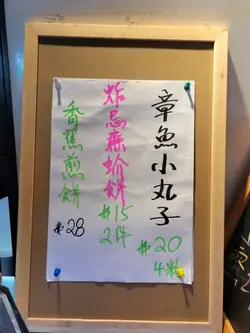 章魚小丸子
$20
4粒
炸忌廉蚧餅
$15
2件
香蕉煎餅
$28